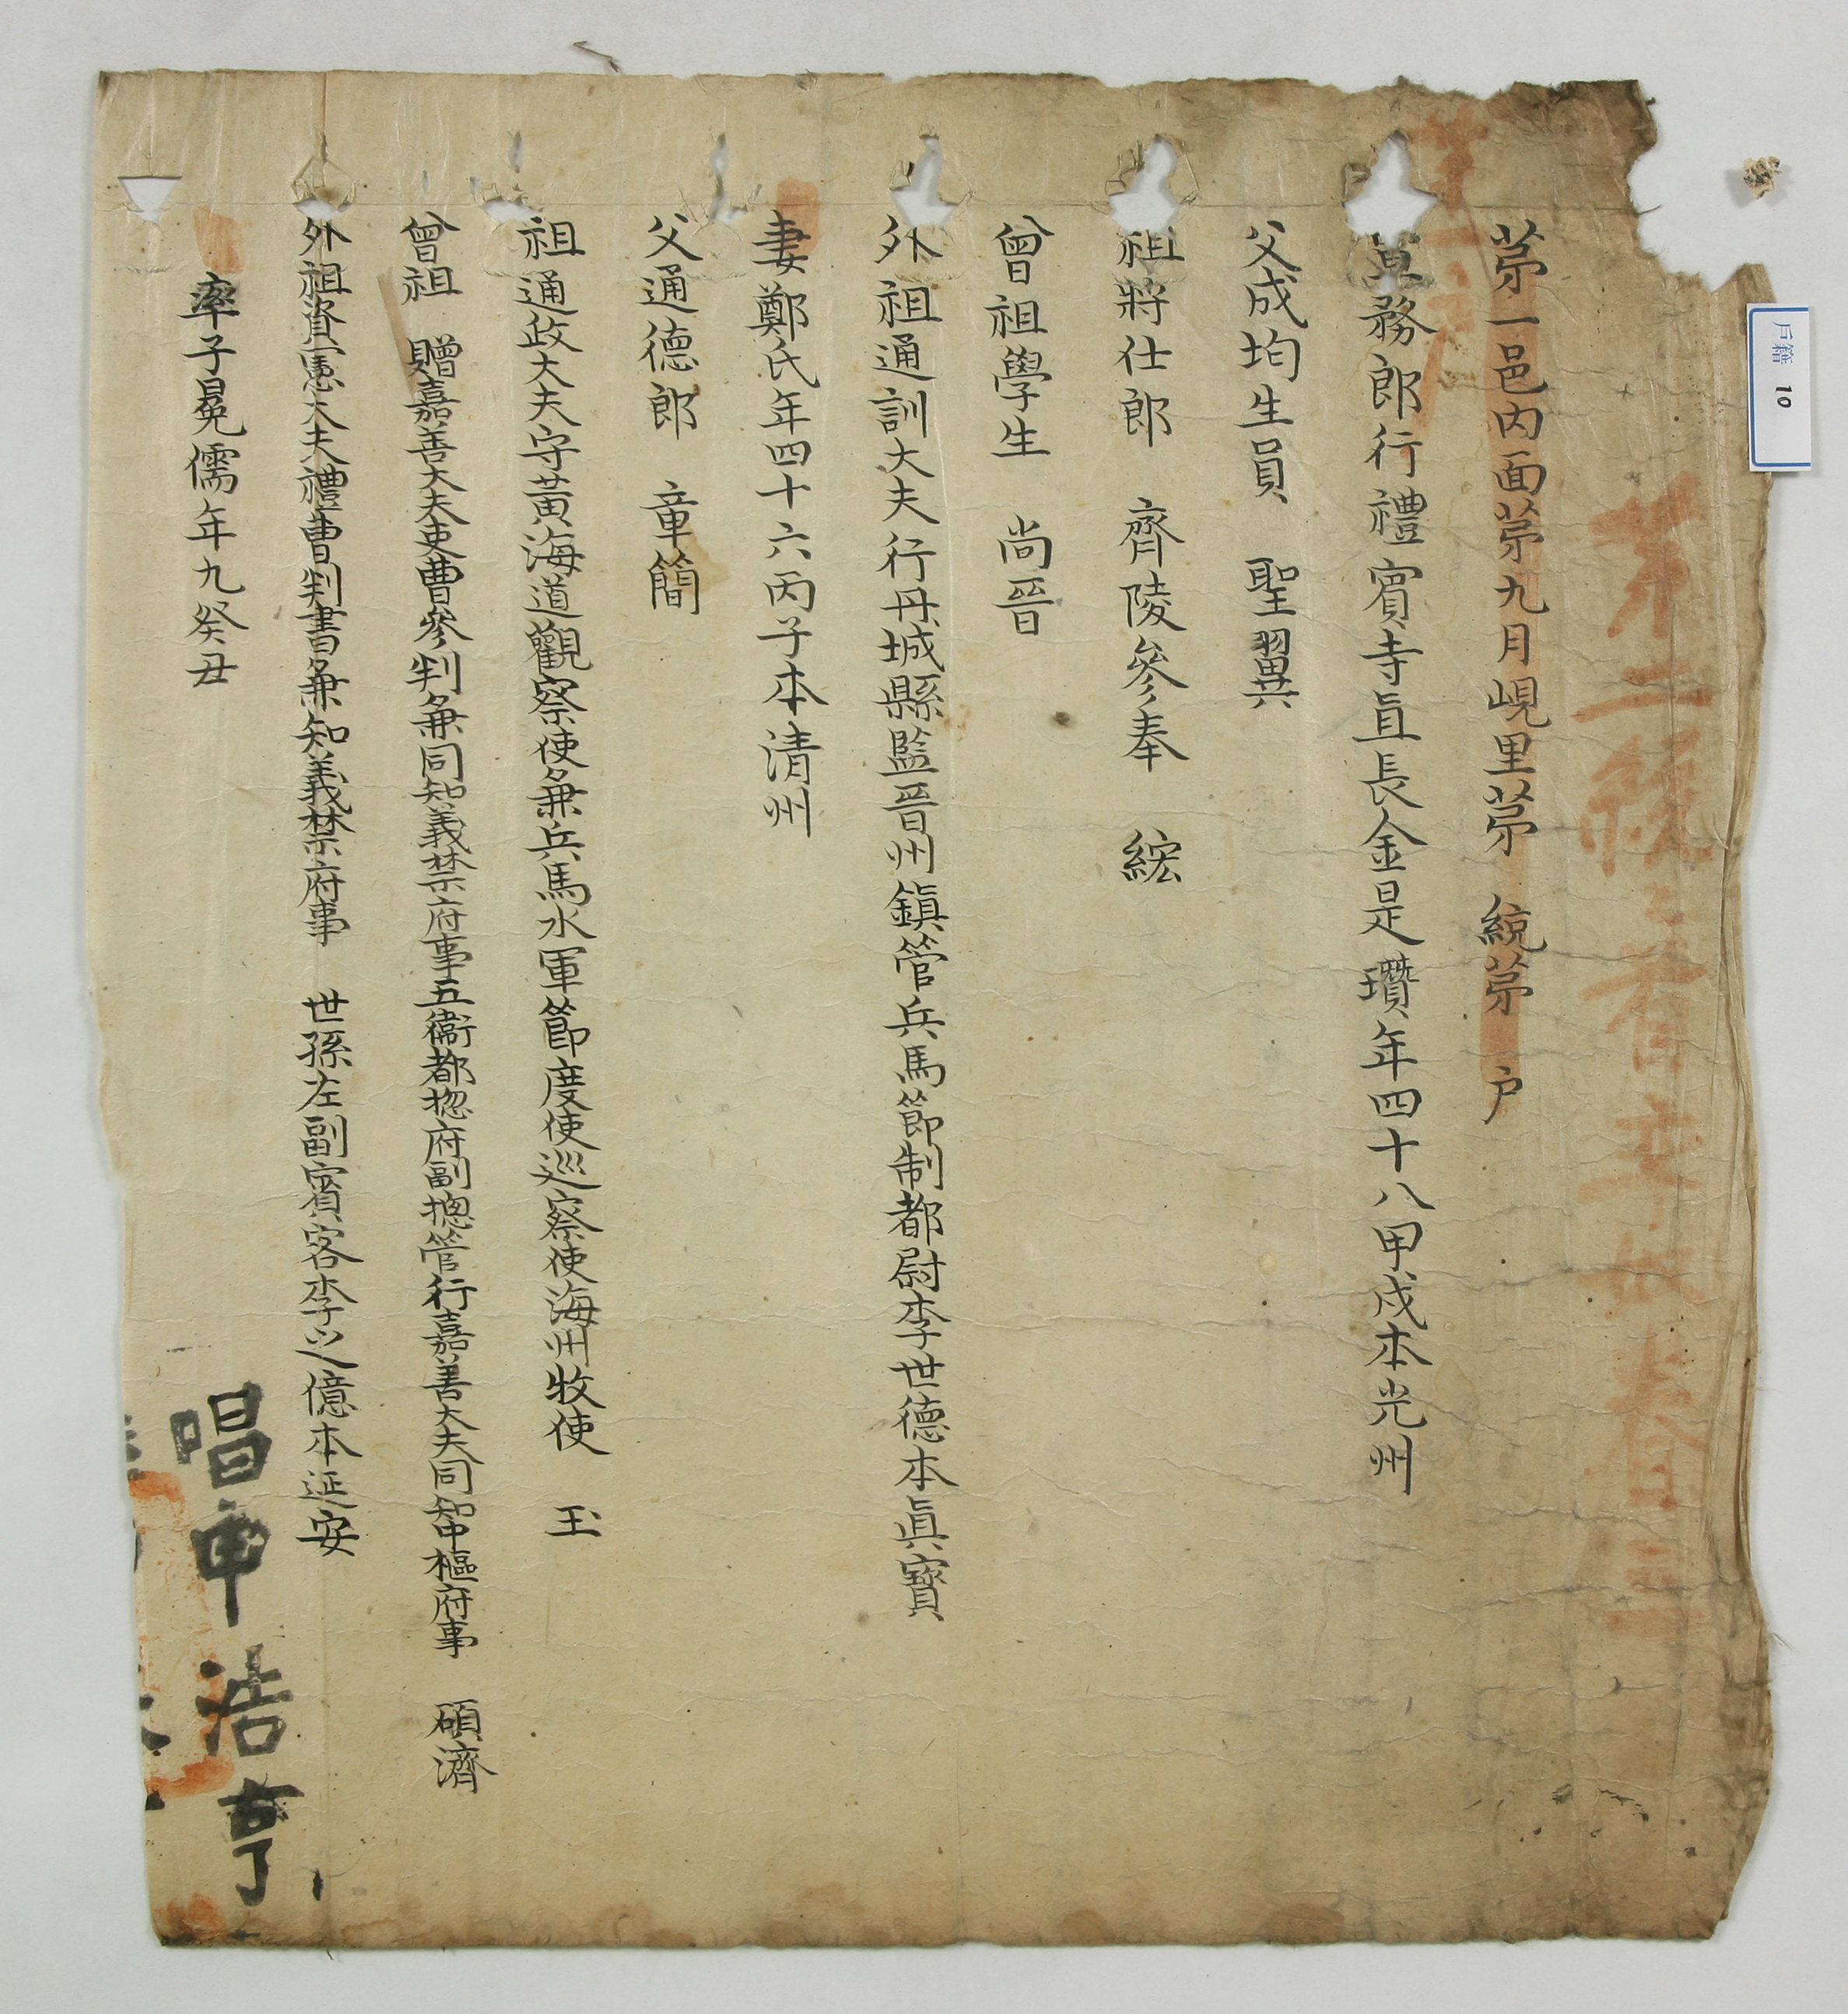 第一邑內面第九月峴里第 統第 戶
務郎行禮賓寺直長金是瓚年四十八甲戌本光州
父成均生員 聖翼
祖將仕郎 齊陵參奉 綋
曾祖學生 尚晉
外祖通訓大夫行丹城縣監晋州鎭管兵馬節制都尉李世德本眞寶
妻鄭氏年四十六丙子本清州
父通德郎 章簡
祖通政大夫守黃海道觀察使兼兵馬水軍節度使巡察使海州牧使 玉
曾祖 贈嘉善大夫吏曹參判兼同知義禁府事五衛都摠府副摠管行嘉善大夫同知中樞府事 碩濟
外祖資憲大夫禮曹判書兼知義禁府事 世孫左副賓客李之億本延安
率子冕儒年九癸丑
唱申浩亨
戶籍 10